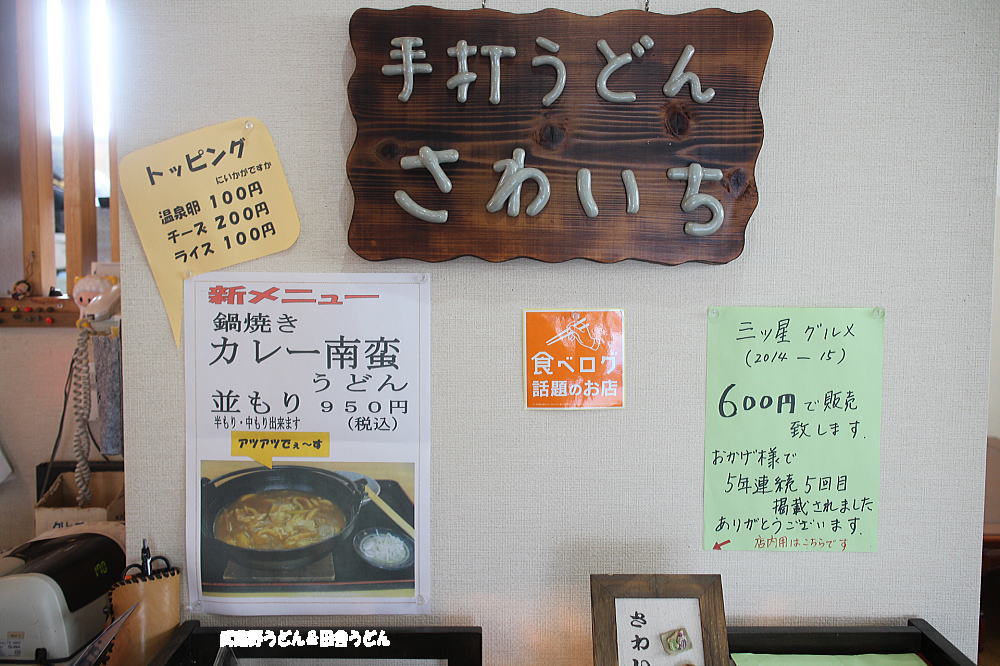 手打うどん
さわいち
トッピング
にいかがですか
温泉卵 100円
チーズ 200円
ライス 100円
新メニュー
鍋焼き
カレー南蛮
うどん
並もり 950円
半もり・中もり出来ます (税込)
アツアツでぇ～す
食べログ
話題のお店
三ッ星 グルメ
(2014-15)
600円で販売
致します.
おかげ様で
5年連続5回目
掲載されました
ありがとうございます.
店内用はこちらです
さわい
武蔵野うどん＆田舎うどん